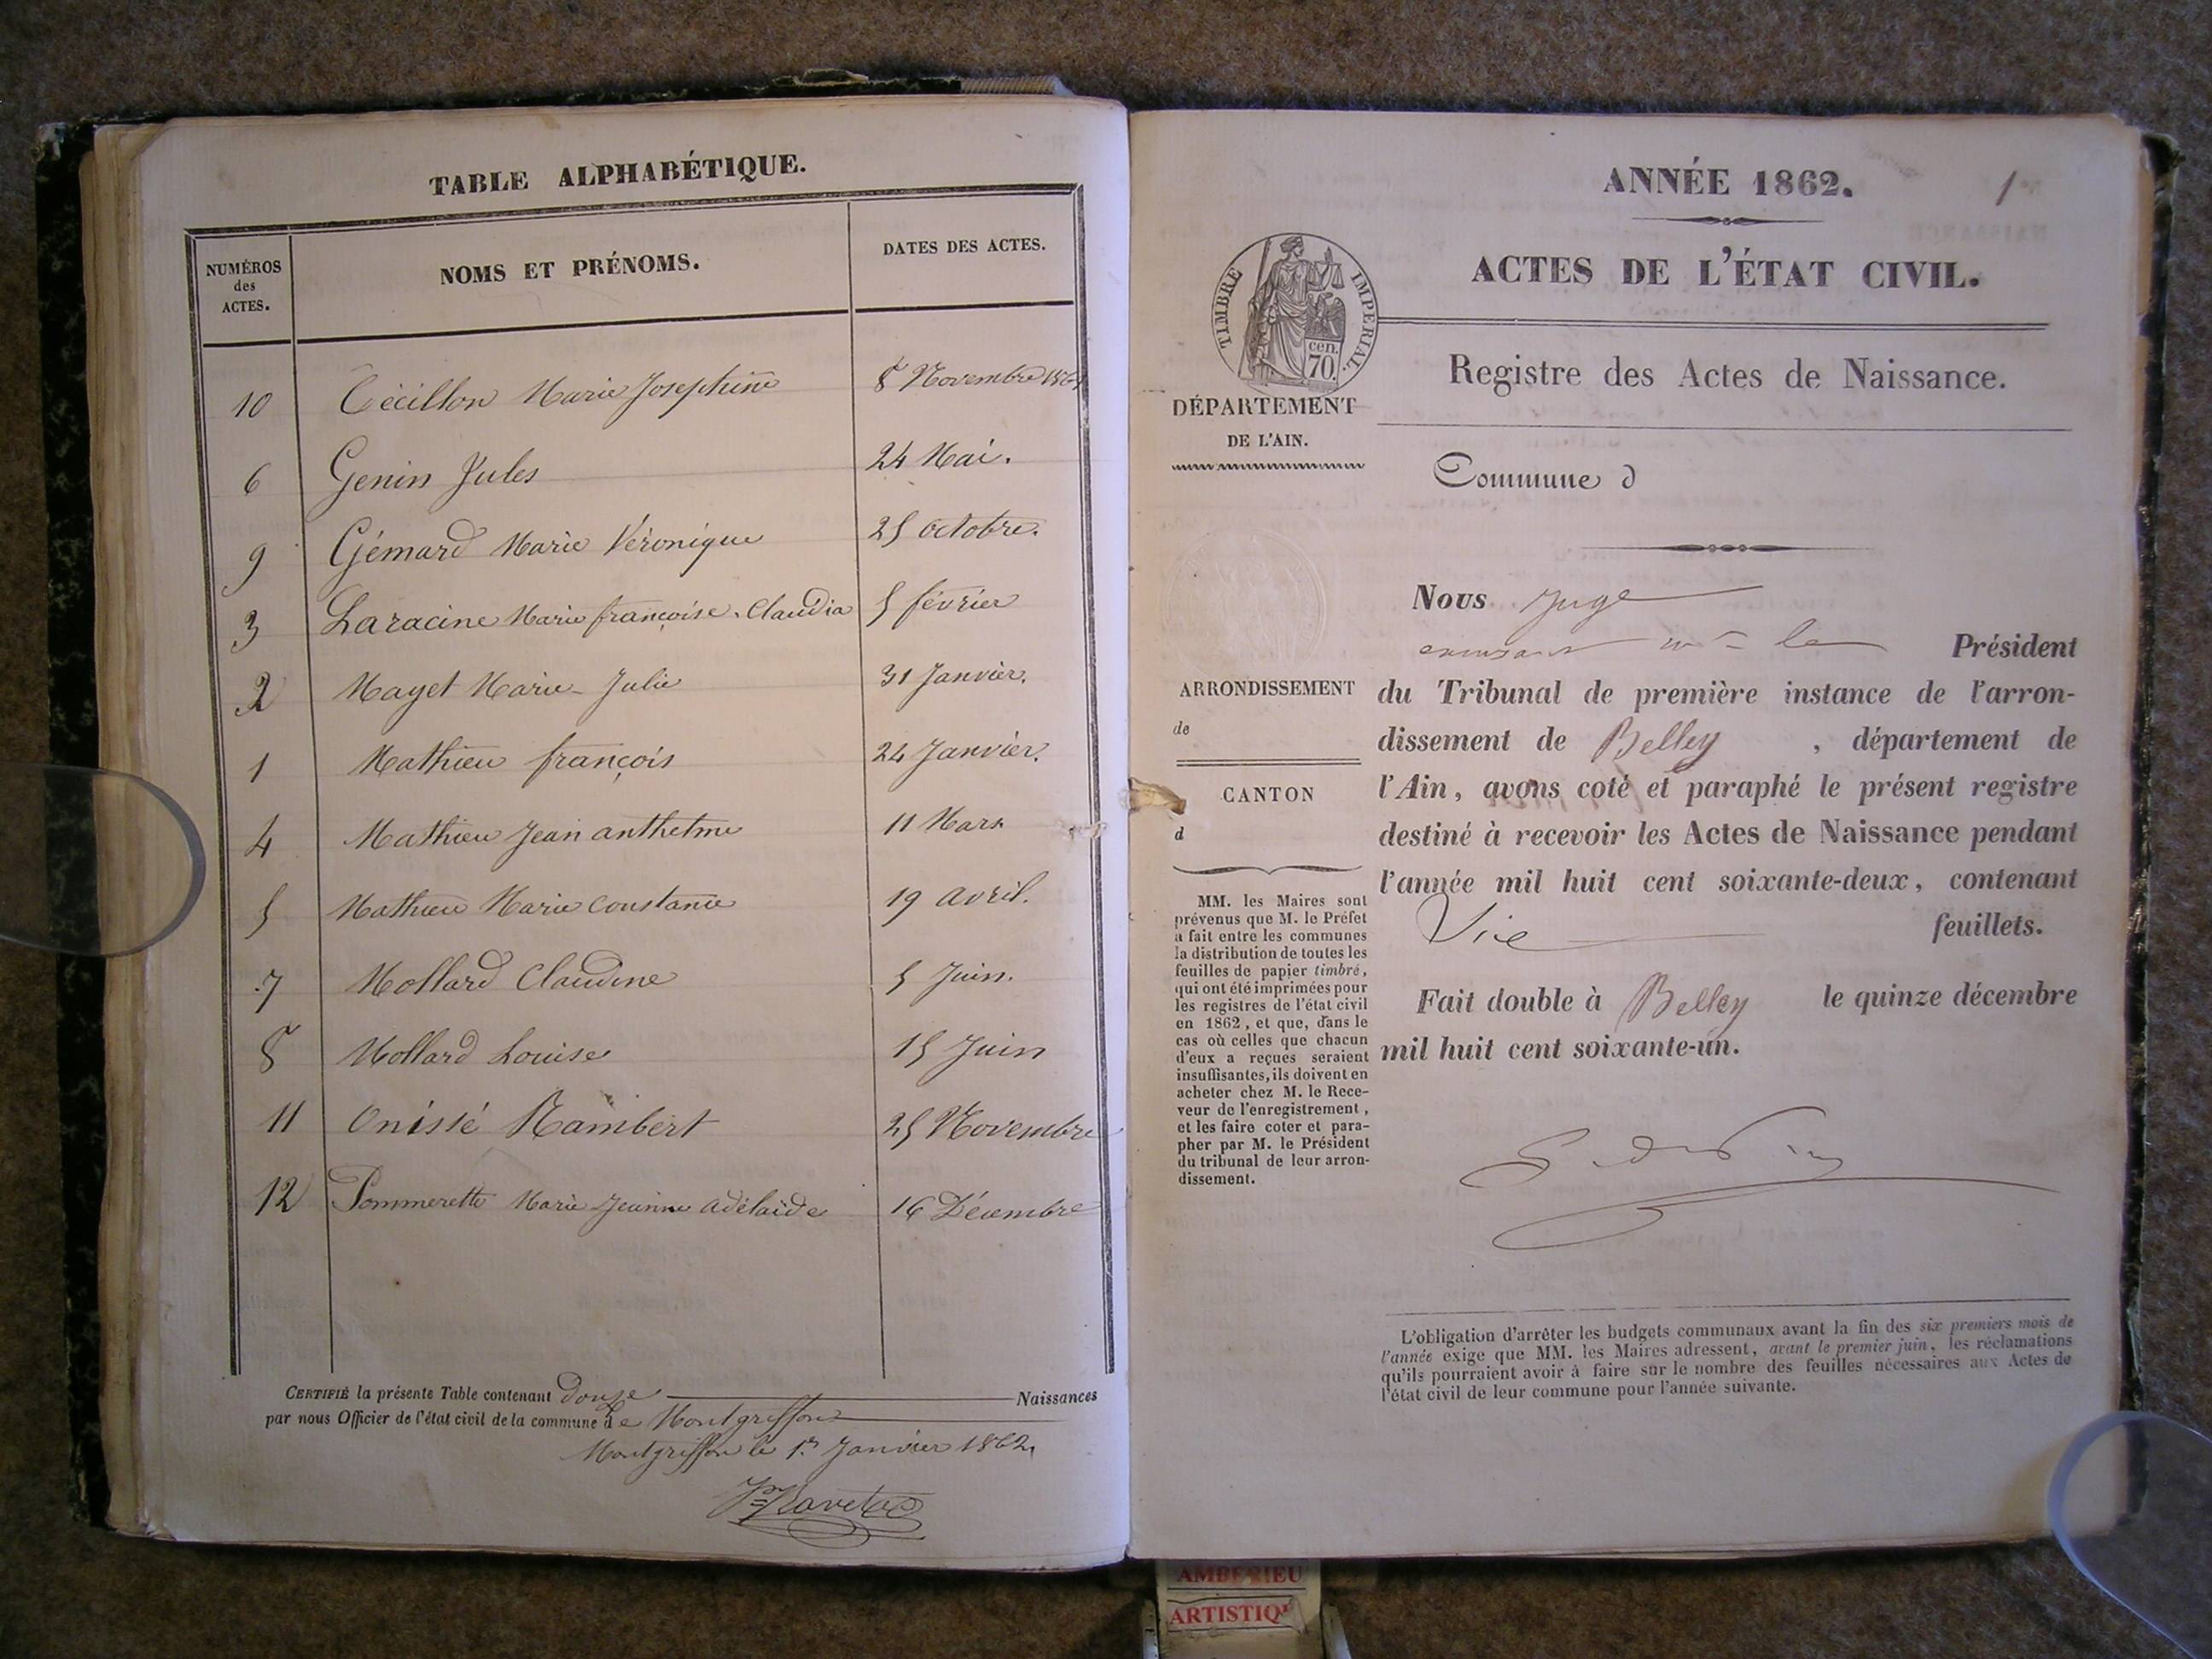 TABLE ALPHABÉTIQUE.
NUMÉROS des ACTES. NOMS ET PRÉNOMS. DATES DES ACTES.
10 Cécillon Marie Josephine 8 Novembre 1861
6 Genin Jules 24 Mai.
9 Gémard Marie Véronique 25 octobre.
3 Laracine Marie françoise Claudia 5 février
2 Mayet Marie-Julie 31 Janvier.
1 Mathieu françois 24 Janvier.
4 Mathieu Jean anthelme 11 Mars
5 Mathieu Marie Constance 19 avril.
7 Mollard Claudine 5 Juin.
8 Mollard Louise 15 Juin
11 Onissé Rambert 25 Novembre
12 Pommerette Marie Jeanne adélaïde 16 Décembre
CERTIFIÉ la présente Table contenant Douze Naissances
par nous Officier de l'état civil de la commune de Montgriffon
Montgriffon le 1er Janvier 1862
1
ANNÉE 1862.
ACTES DE L'ÉTAT CIVIL.
TIMBRE IMPERIAL.
cen.
70.
Registre des Actes de Naissance.
DÉPARTEMENT
DE L'AIN.
Commune d
ARRONDISSEMENT
de
CANTON
d
MM. les Maires sont
prévenus que M. le Préfet
a fait entre les communes
la distribution de toutes les
feuilles de papier timbré,
qui ont été imprimées pour
les registres de l'état civil
en 1862, et que, dans le
cas où celles que chacun
d'eux a reçues seraient
insuffisantes, ils doivent en
acheter chez M. le Rece-
veur de l'enregistrement,
et les faire coter et para-
pher par M. le Président
du tribunal de leur arron-
dissement.
Nous Juge
le Président
du Tribunal de première instance de l'arron-
dissement de Belley, département de
l'Ain, avons coté et paraphé le présent registre
destiné à recevoir les Actes de Naissance pendant
l'année mil huit cent soixante-deux, contenant
feuillets.
Fait double à Belley le quinze décembre
mil huit cent soixante-un.
L'obligation d'arrêter les budgets communaux avant la fin des six premiers mois de
l'année exige que MM. les Maires adressent, avant le premier juin, les réclamations
qu'ils pourraient avoir à faire sur le nombre des feuilles nécessaires aux Actes de
l'état civil de leur commune pour l'année suivante.
AMBERIEU
ARTISTIQ